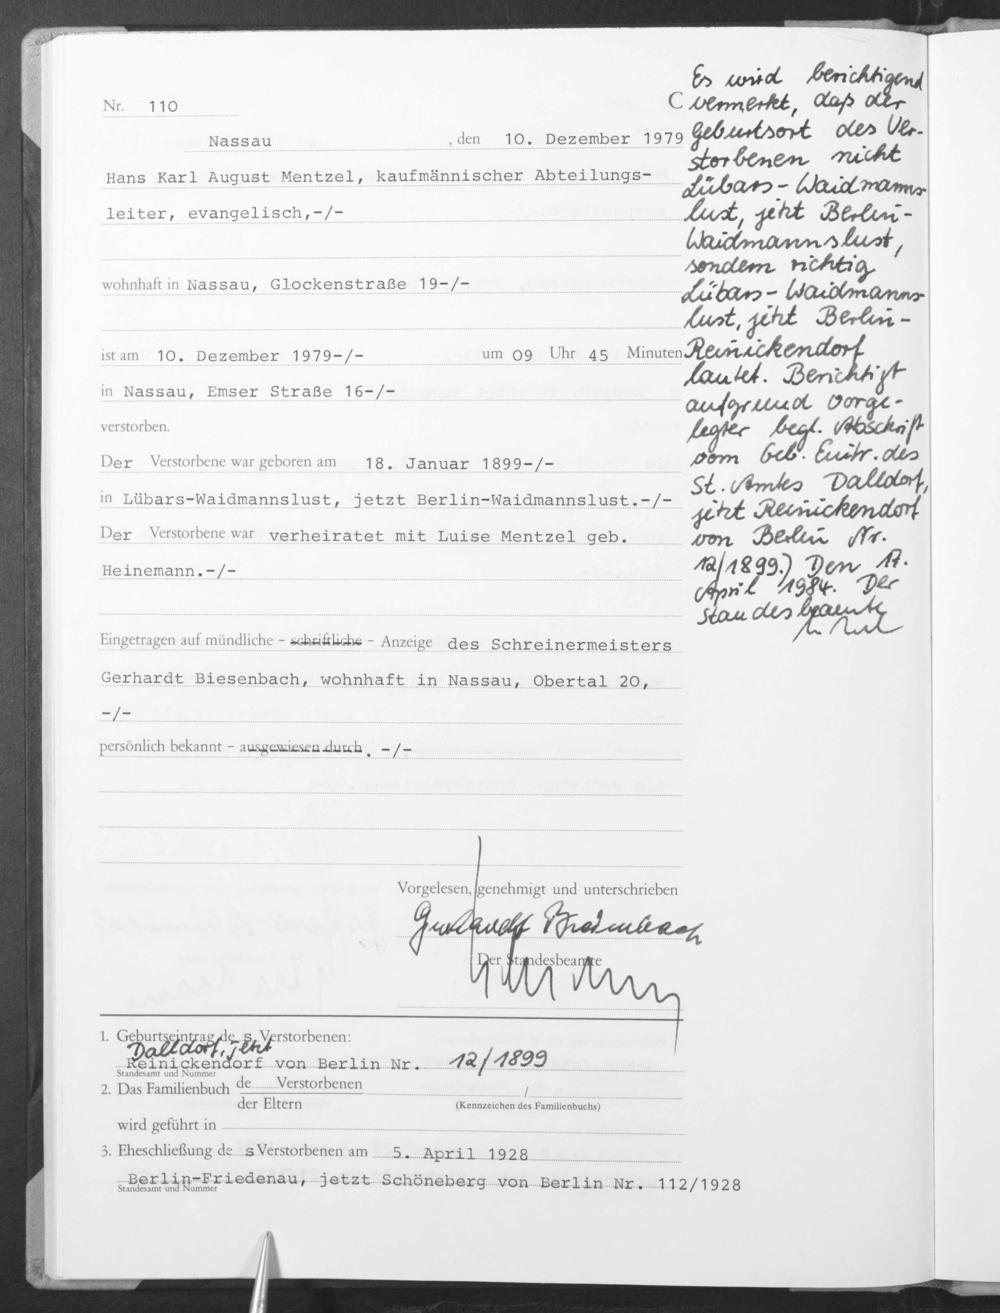 Nr. 110 C
Nassau , den 10. Dezember 1979
Hans Karl August Mentzel, kaufmännischer Abteilungs-
leiter, evangelisch,-/-
wohnhaft in Nassau, Glockenstraße 19-/-
ist am 10. Dezember 1979-/- um 09 Uhr 45 Minuten
in Nassau, Emser Straße 16-/-
verstorben.
Der Verstorbene war geboren am 18. Januar 1899-/-
in Lübars-Waidmannslust, jetzt Berlin-Waidmannslust.-/-
Der Verstorbene war verheiratet mit Luise Mentzel geb.
Heinemann.-/-
Eingetragen auf mündliche - schriftliche - Anzeige des Schreinermeisters
Gerhardt Biesenbach, wohnhaft in Nassau, Obertal 20,
-/-
persönlich bekannt - ausgewiesen durch. -/-
Vorgelesen, genehmigt und unterschrieben
Gerhardt Biesenbach
Der Standesbeamte
1. Geburtseintrag des Verstorbenen:
Dalldorf, jetzt
Reinickendorf von Berlin Nr. 12/1899
Standesamt und Nummer
2. Das Familienbuch de Verstorbenen /
der Eltern (Kennzeichen des Familienbuchs)
wird geführt in
3. Eheschließung des Verstorbenen am 5. April 1928
Berlin-Friedenau, jetzt Schöneberg von Berlin Nr. 112/1928
Standesamt und Nummer
Es wird berichtigend
vermerkt, daß der
Geburtsort des Ver-
storbenen nicht
Lübars-Waidmanns-
lust, jetzt Berlin-
Waidmannslust,
sondern richtig
Lübars-Waidmanns-
lust, jetzt Berlin-
Reinickendorf
lautet. Berichtigt
aufgrund vorge-
legter begl. Abschrift
vom Geb. Eintr. des
St. Amtes Dalldorf,
jetzt Reinickendorf
von Berlin Nr.
12/1899.) Den 17.
April 1984. Der
Standesbeamte